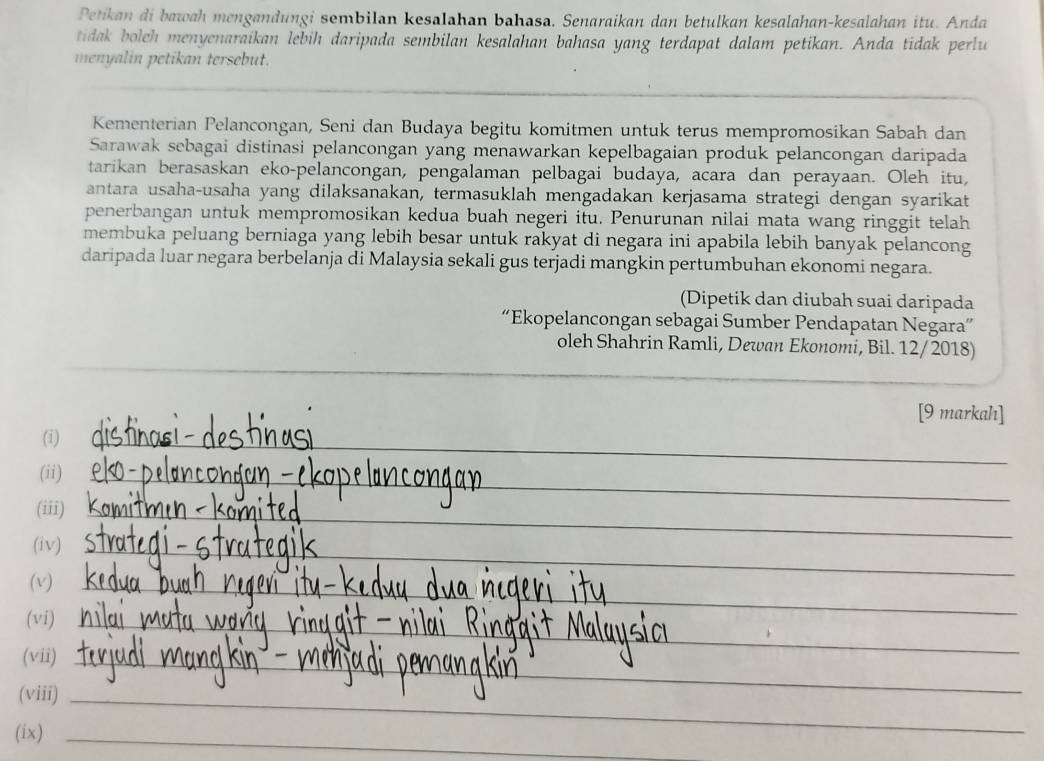 Petikan di bawah mengandungi sembilan kesalahan bahasa. Senaraikan dan betulkan kesalahan-kesalahan itu. Anda
tidak boleh menyenaraikan lebih daripada sembilan kesalahan bahasa yang terdapat dalam petikan. Anda tidak perlu
menyalin petikan tersebut.
Kementerian Pelancongan, Seni dan Budaya begitu komitmen untuk terus mempromosikan Sabah dan
Sarawak sebagai distinasi pelancongan yang menawarkan kepelbagaian produk pelancongan daripada
tarikan berasaskan eko-pelancongan, pengalaman pelbagai budaya, acara dan perayaan. Oleh itu,
antara usaha-usaha yang dilaksanakan, termasuklah mengadakan kerjasama strategi dengan syarikat
penerbangan untuk mempromosikan kedua buah negeri itu. Penurunan nilai mata wang ringgit telah
membuka peluang berniaga yang lebih besar untuk rakyat di negara ini apabila lebih banyak pelancong
daripada luar negara berbelanja di Malaysia sekali gus terjadi mangkin pertumbuhan ekonomi negara.
(Dipetik dan diubah suai daripada
"Ekopelancongan sebagai Sumber Pendapatan Negara"
oleh Shahrin Ramli, Dewan Ekonomi, Bil. 12/2018)
[9 markah]
(i) distinasi - destinasi
(ii) eko-pelancongan - ekopelancongan
(iii) komitmen - komited
(iv) strategi - strategik
(v) kedua buah negeri itu - kedua dua negeri itu
(vi) nilai mata wang ringgit - nilai Ringgit Malaysia
(vii) terjadi mangkin - menjadi pemangkin
(viii)
(ix)